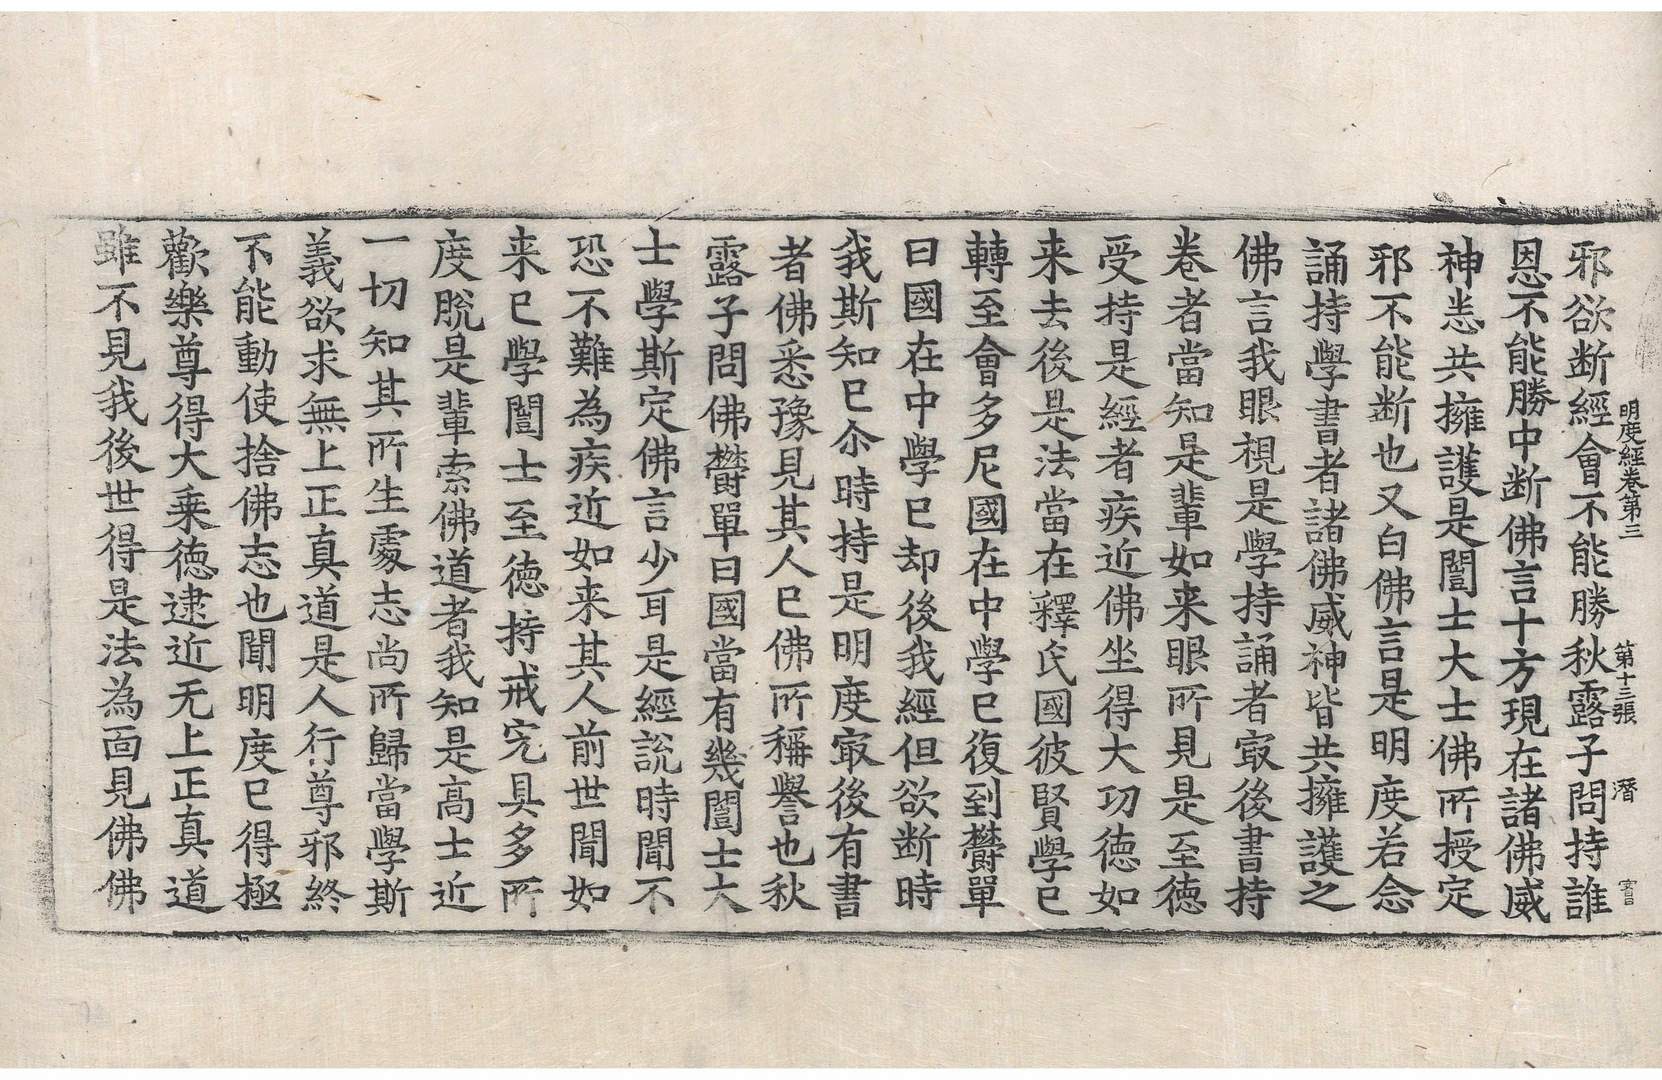 明度經卷第三　第十三張　潛
邪欲断經會不能勝秋露子問持誰
恩不能勝中断佛言十方現在諸佛威
神恙共擁護是闓士大士佛所授定
邪不能断也又白佛言是明度若念
誦持學書者諸佛威神皆共擁護之
佛言我眼視是學持誦者㝡後書持
卷者當知是輩如来眼所見是至徳
受持是經者疾近佛坐得大功徳如
来去後是法當在釋氏國彼賢學已
轉至會多尼國在中學已復到欝單
曰國在中學已却後我經但欲断時
我斯知已尒時持是明度㝡後有書
者佛悉豫見其人已佛所稱譽也秋
露子問佛欝單曰國當有幾闓士大
士學斯定佛言少耳是經說時聞不
恐不難為疾近如来其人前世聞如
来已學闓士至徳持戒完具多所
度脫是輩索佛道者我知是高士近
一切知其所生處志尚所歸當學斯
義欲求無上正真道是人行尊邪終
不能動使捨佛志也聞明度已得極
歡樂尊得大乗徳逮近无上正真道
雖不見我後世得是法為面見佛佛